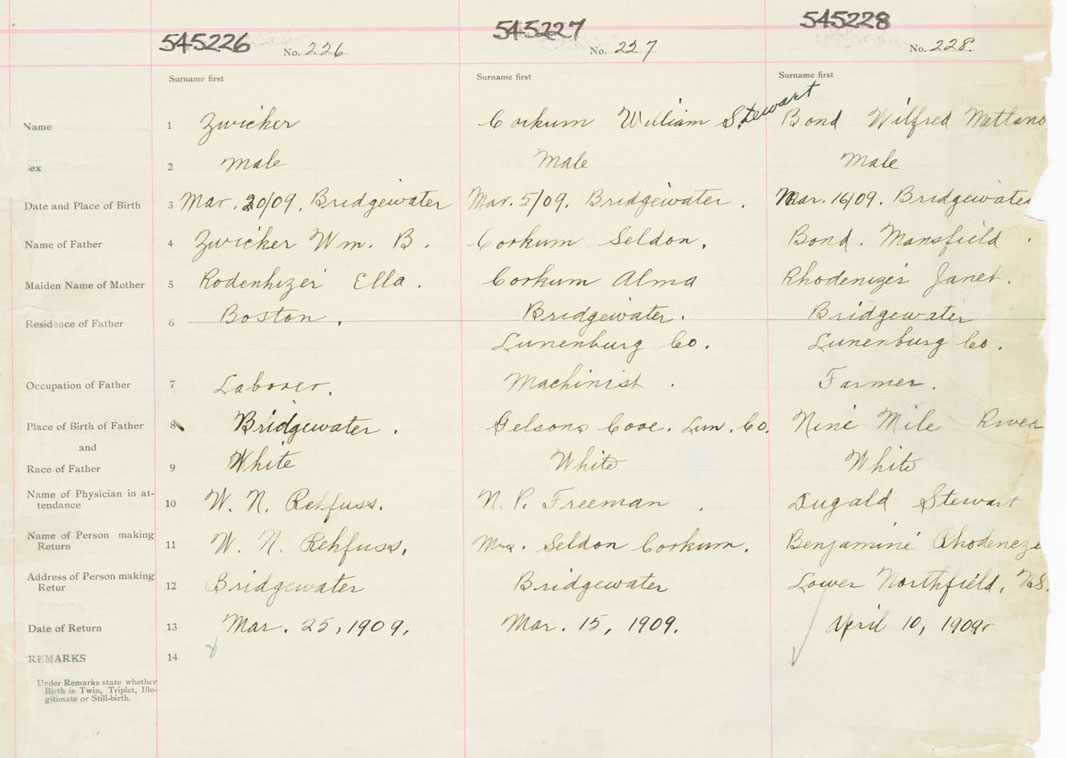 545226 No. 226 545227 No. 227 545228 No. 228.
Surname first Surname first Surname first
Name 1 Zwicker Corkum William Stewart Bond Wilfred
ex 2 Male Male Male
Date and Place of Birth 3 Mar. 20/09. Bridgewater Mar. 5/09. Bridgewater. Mar. 16/09. Bridgewater
Name of Father 4 Zwicker Wm. B. Corkum Seldon. Bond. Mansfield.
Maiden Name of Mother 5 Rodenhizer Ella. Corkum Alma Rhodenizer Janet.
Residence of Father 6 Boston. Bridgewater. Bridgewater
Lunenburg Co. Lunenburg Co.
Occupation of Father 7 Laborer. Machinist. Farmer.
Place of Birth of Father 8 Bridgewater. Gelsons Cove. Lun. Co. Nine Mile River
and
Race of Father 9 White White White
Name of Physician in at-
tendance 10 W. N. Rehfuss. N. P. Freeman. Dugald Stewart
Name of Person making
Return 11 W. N. Rehfuss. Mrs. Seldon Corkum. Benjamine Rhodeneze
Address of Person making
Retur 12 Bridgewater Bridgewater Lower Northfield, N.S.
Date of Return 13 Mar. 25, 1909. Mar. 15, 1909. April 10, 1909
REMARKS 14
Under Remarks state whether
Birth is Twin, Triplet, Ille-
gitimate or Still-birth.